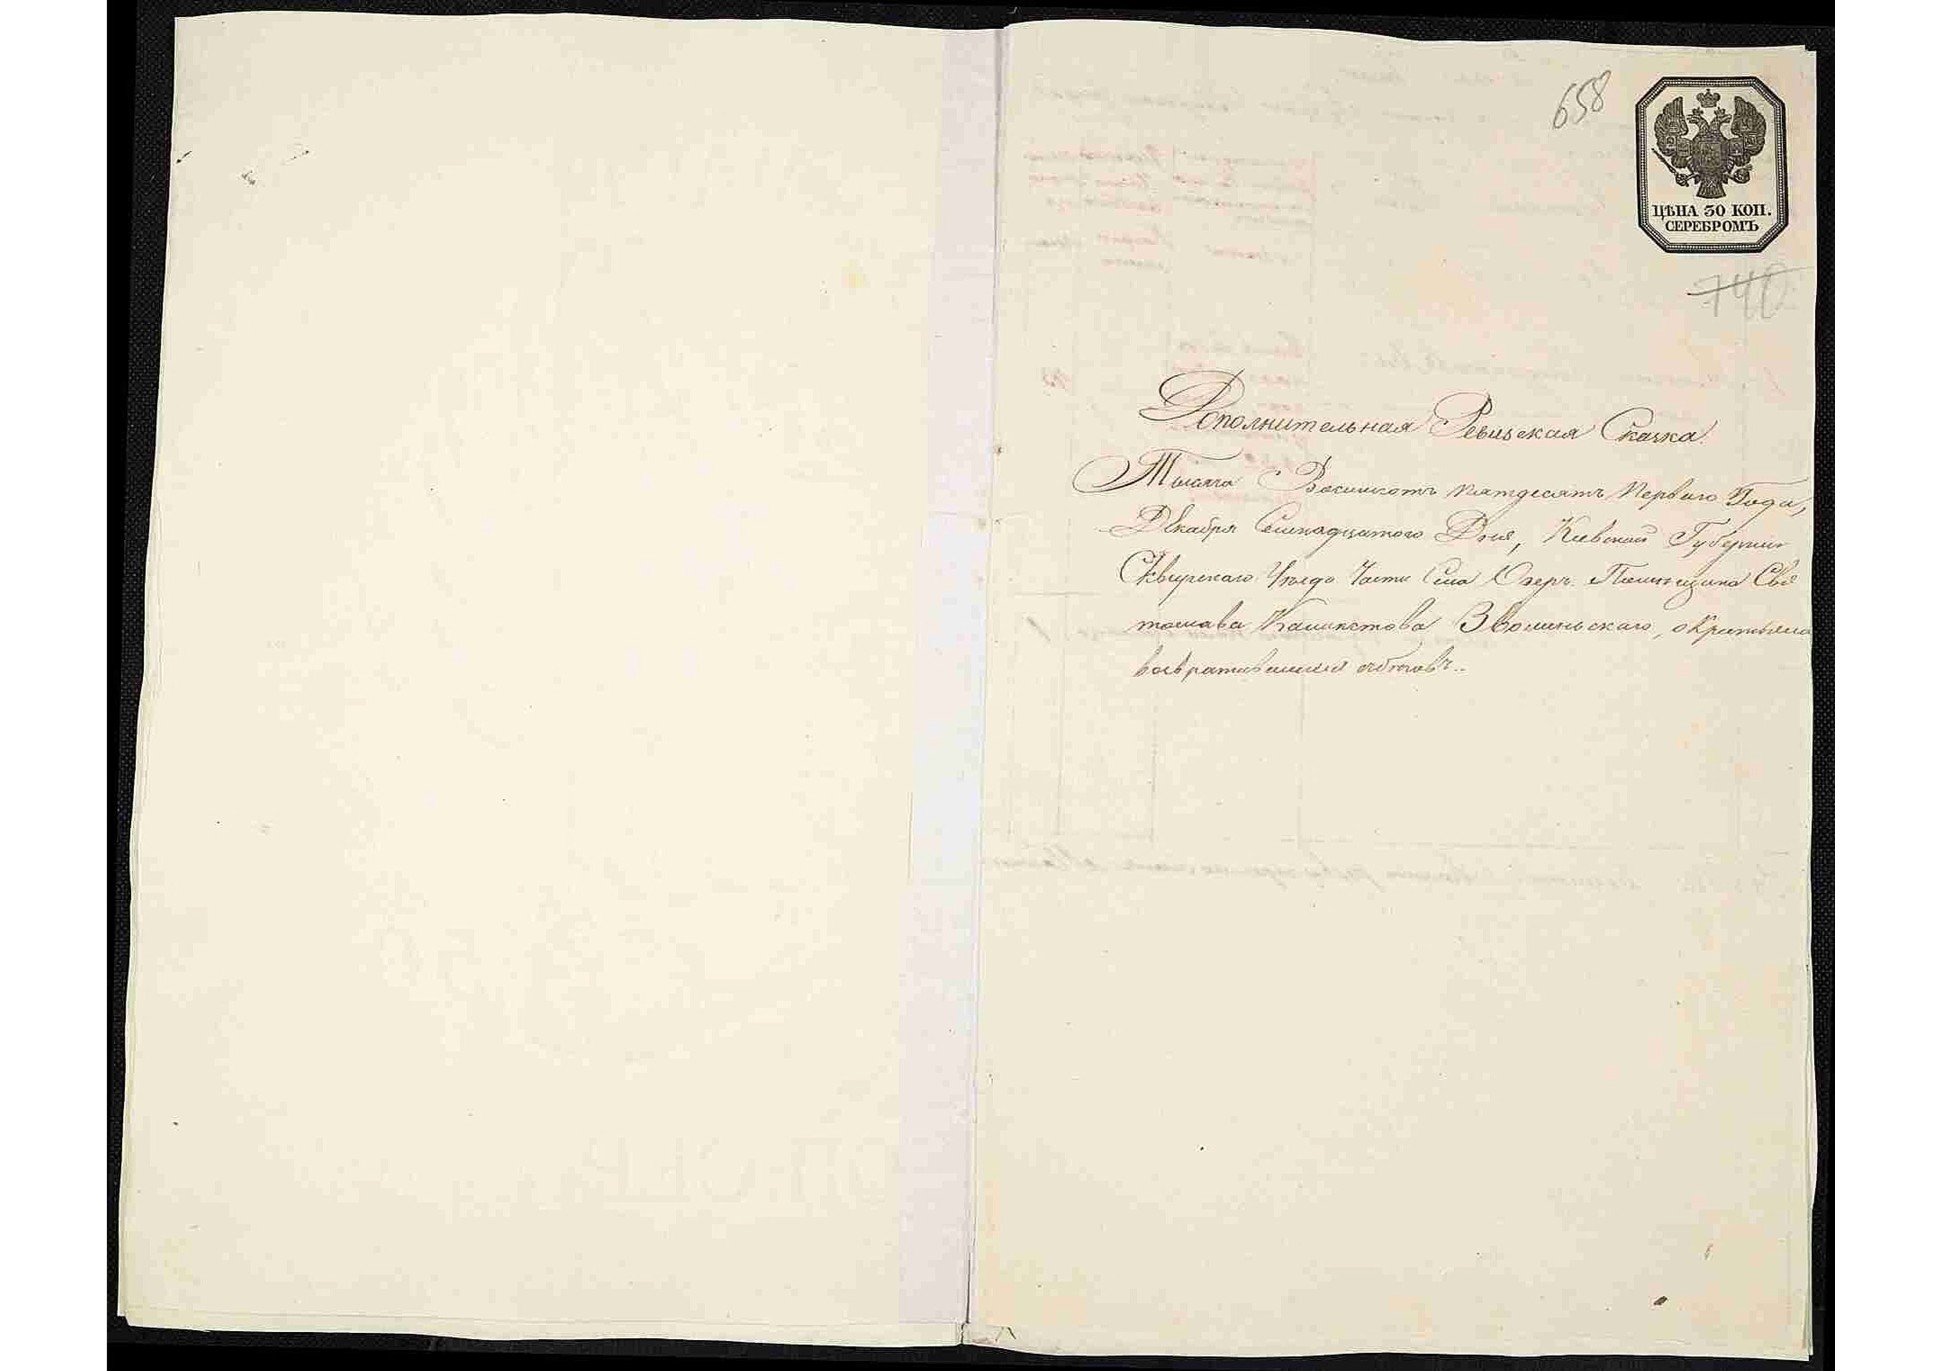 658
ЦѢНА 30 КОП.
СЕРЕБРОМЪ
740
Дополнительная Ревизская Сказка.
Тысяча Восимсотъ пятдесятъ Перваго Года,
Декабря Семнадцатого Дня, Киевской Губернии
Сквирскаго Уезда Части Села Озеръ Помещика Све
тослава Каликстова Зволиньскаго, о Крестьянах
возвратившихся